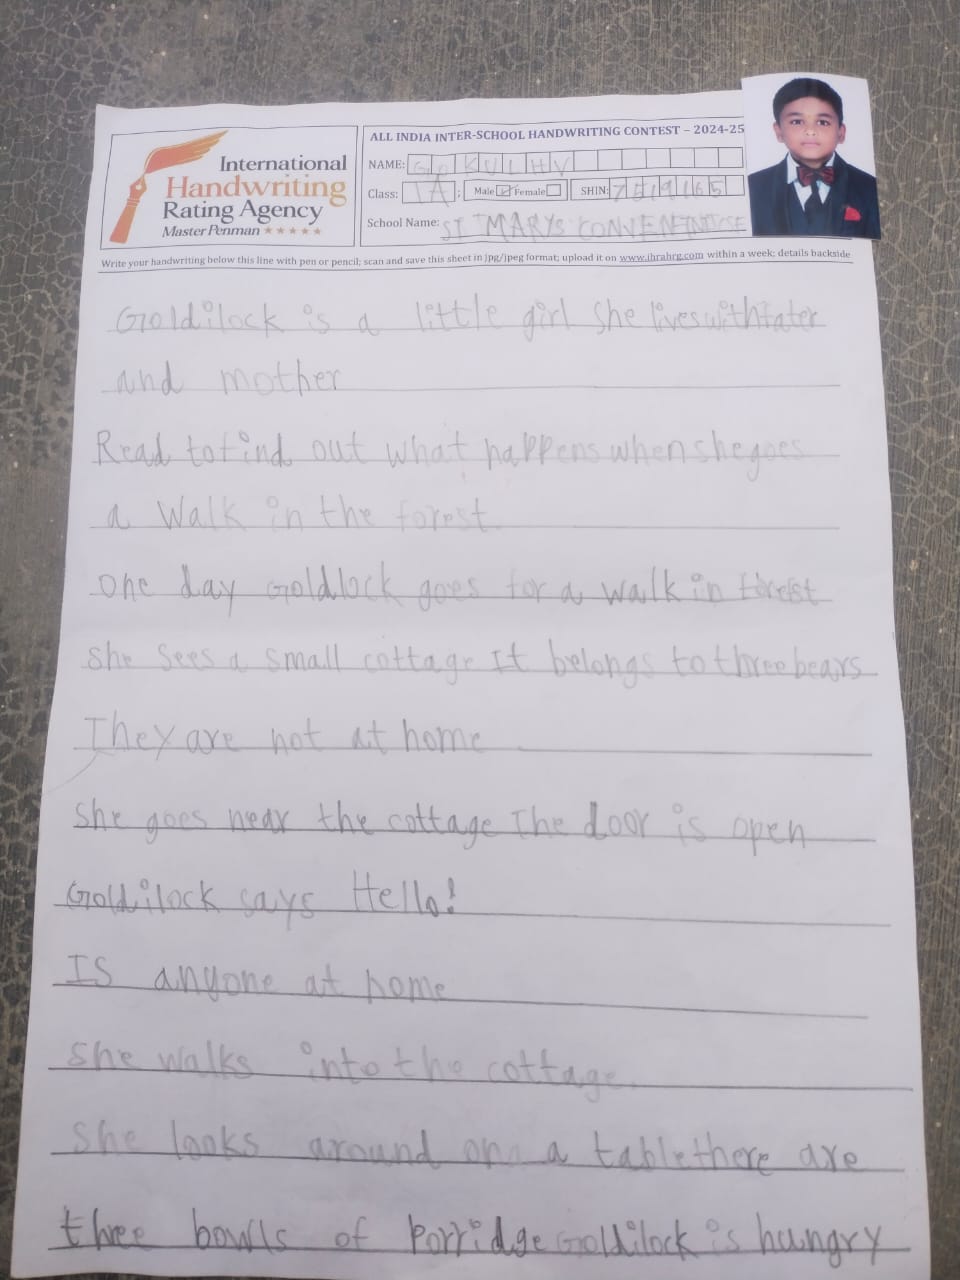 International
Handwriting
Rating Agency
Master Penman
ALL INDIA INTER-SCHOOL HANDWRITING CONTEST – 2024-25
NAME: GOKULHV
Class: 1A; Male Female SHIN: 7519165
School Name: ST MARYS
Write your handwriting below this line with pen or pencil; scan and save this sheet in jpg/jpeg format; upload it on www.ihrahrg.com within a week; details backside
Goldilock is a little girl She lives with fater
and mother
Read to find out what happens when she goes
a walk in the forest
one day Goldlock goes for a walk in forest
she sees a small cottage It belongs to three bears
They are not at home
she goes near the cottage The door is open
Goldilock says Hello!
IS anyone at home
she walks into the cottage.
she looks around on a table there are
three bowls of Porridge Goldilock is hungry